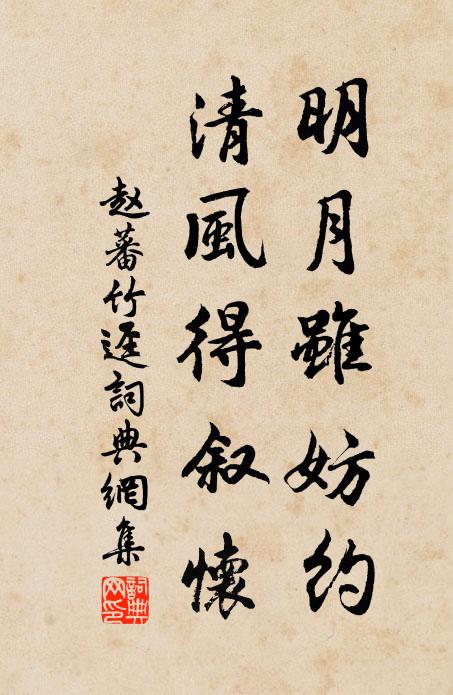 明月雖妨約
清風得叙懷
赵蕃竹逕詞典網集
詞典網印